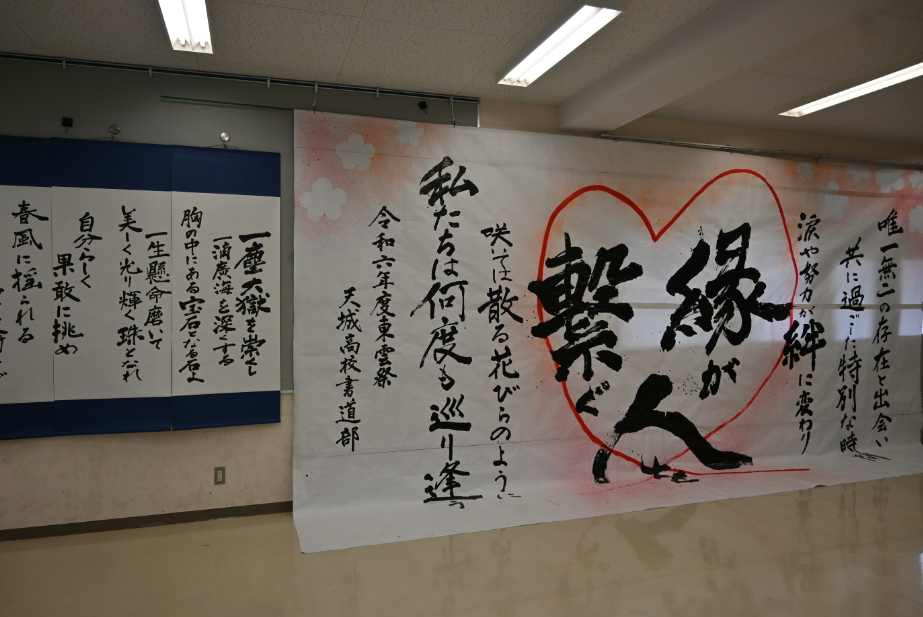 唯一無二の存在と出会い
共に過ごした特別な時
涙や努力が絆に変わり
縁が
繋ぐ
人
咲いては散る花びらのように
私たちは何度も巡り逢う
令和六年度東雲祭
天城高校書道部
一塵大嶽を崇くし
一滴廣海を深くする
胸の中にある宝石となる石よ
一生懸命磨いて
美しく光り輝く珠となれ
自分らしく
果敢に挑め
春風に揺られる